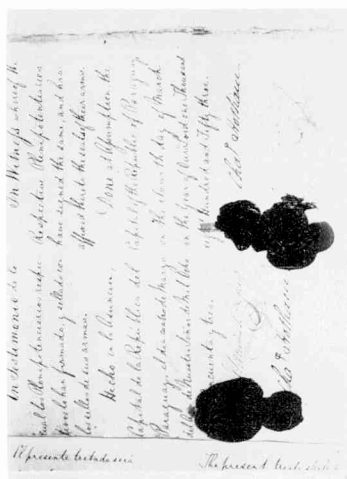 En testimonio de lo
cual los Plenipotenciarios respec-
tivos han firmado, y sellado con
los sellos de sus armas.
Hecho en la Asuncion,
Capital de la Republica del
Paraguay el dia cuatro de Marzo
del año de Nuestro Señor de Mil Ocho
cincuenta y tres.
In Witness whereof the
Respective Plenipotentiaries
have signed the same, and have
affixed thereto the seal of their arms.
Done at Assumption the
Capital of the Republic of Paraguay
on the day of March
in the year of Our Lord one thousand
eight hundred and fifty three.
Cha. Hotham
Cha. Hotham
El presente tratado será
The present treaty shall be